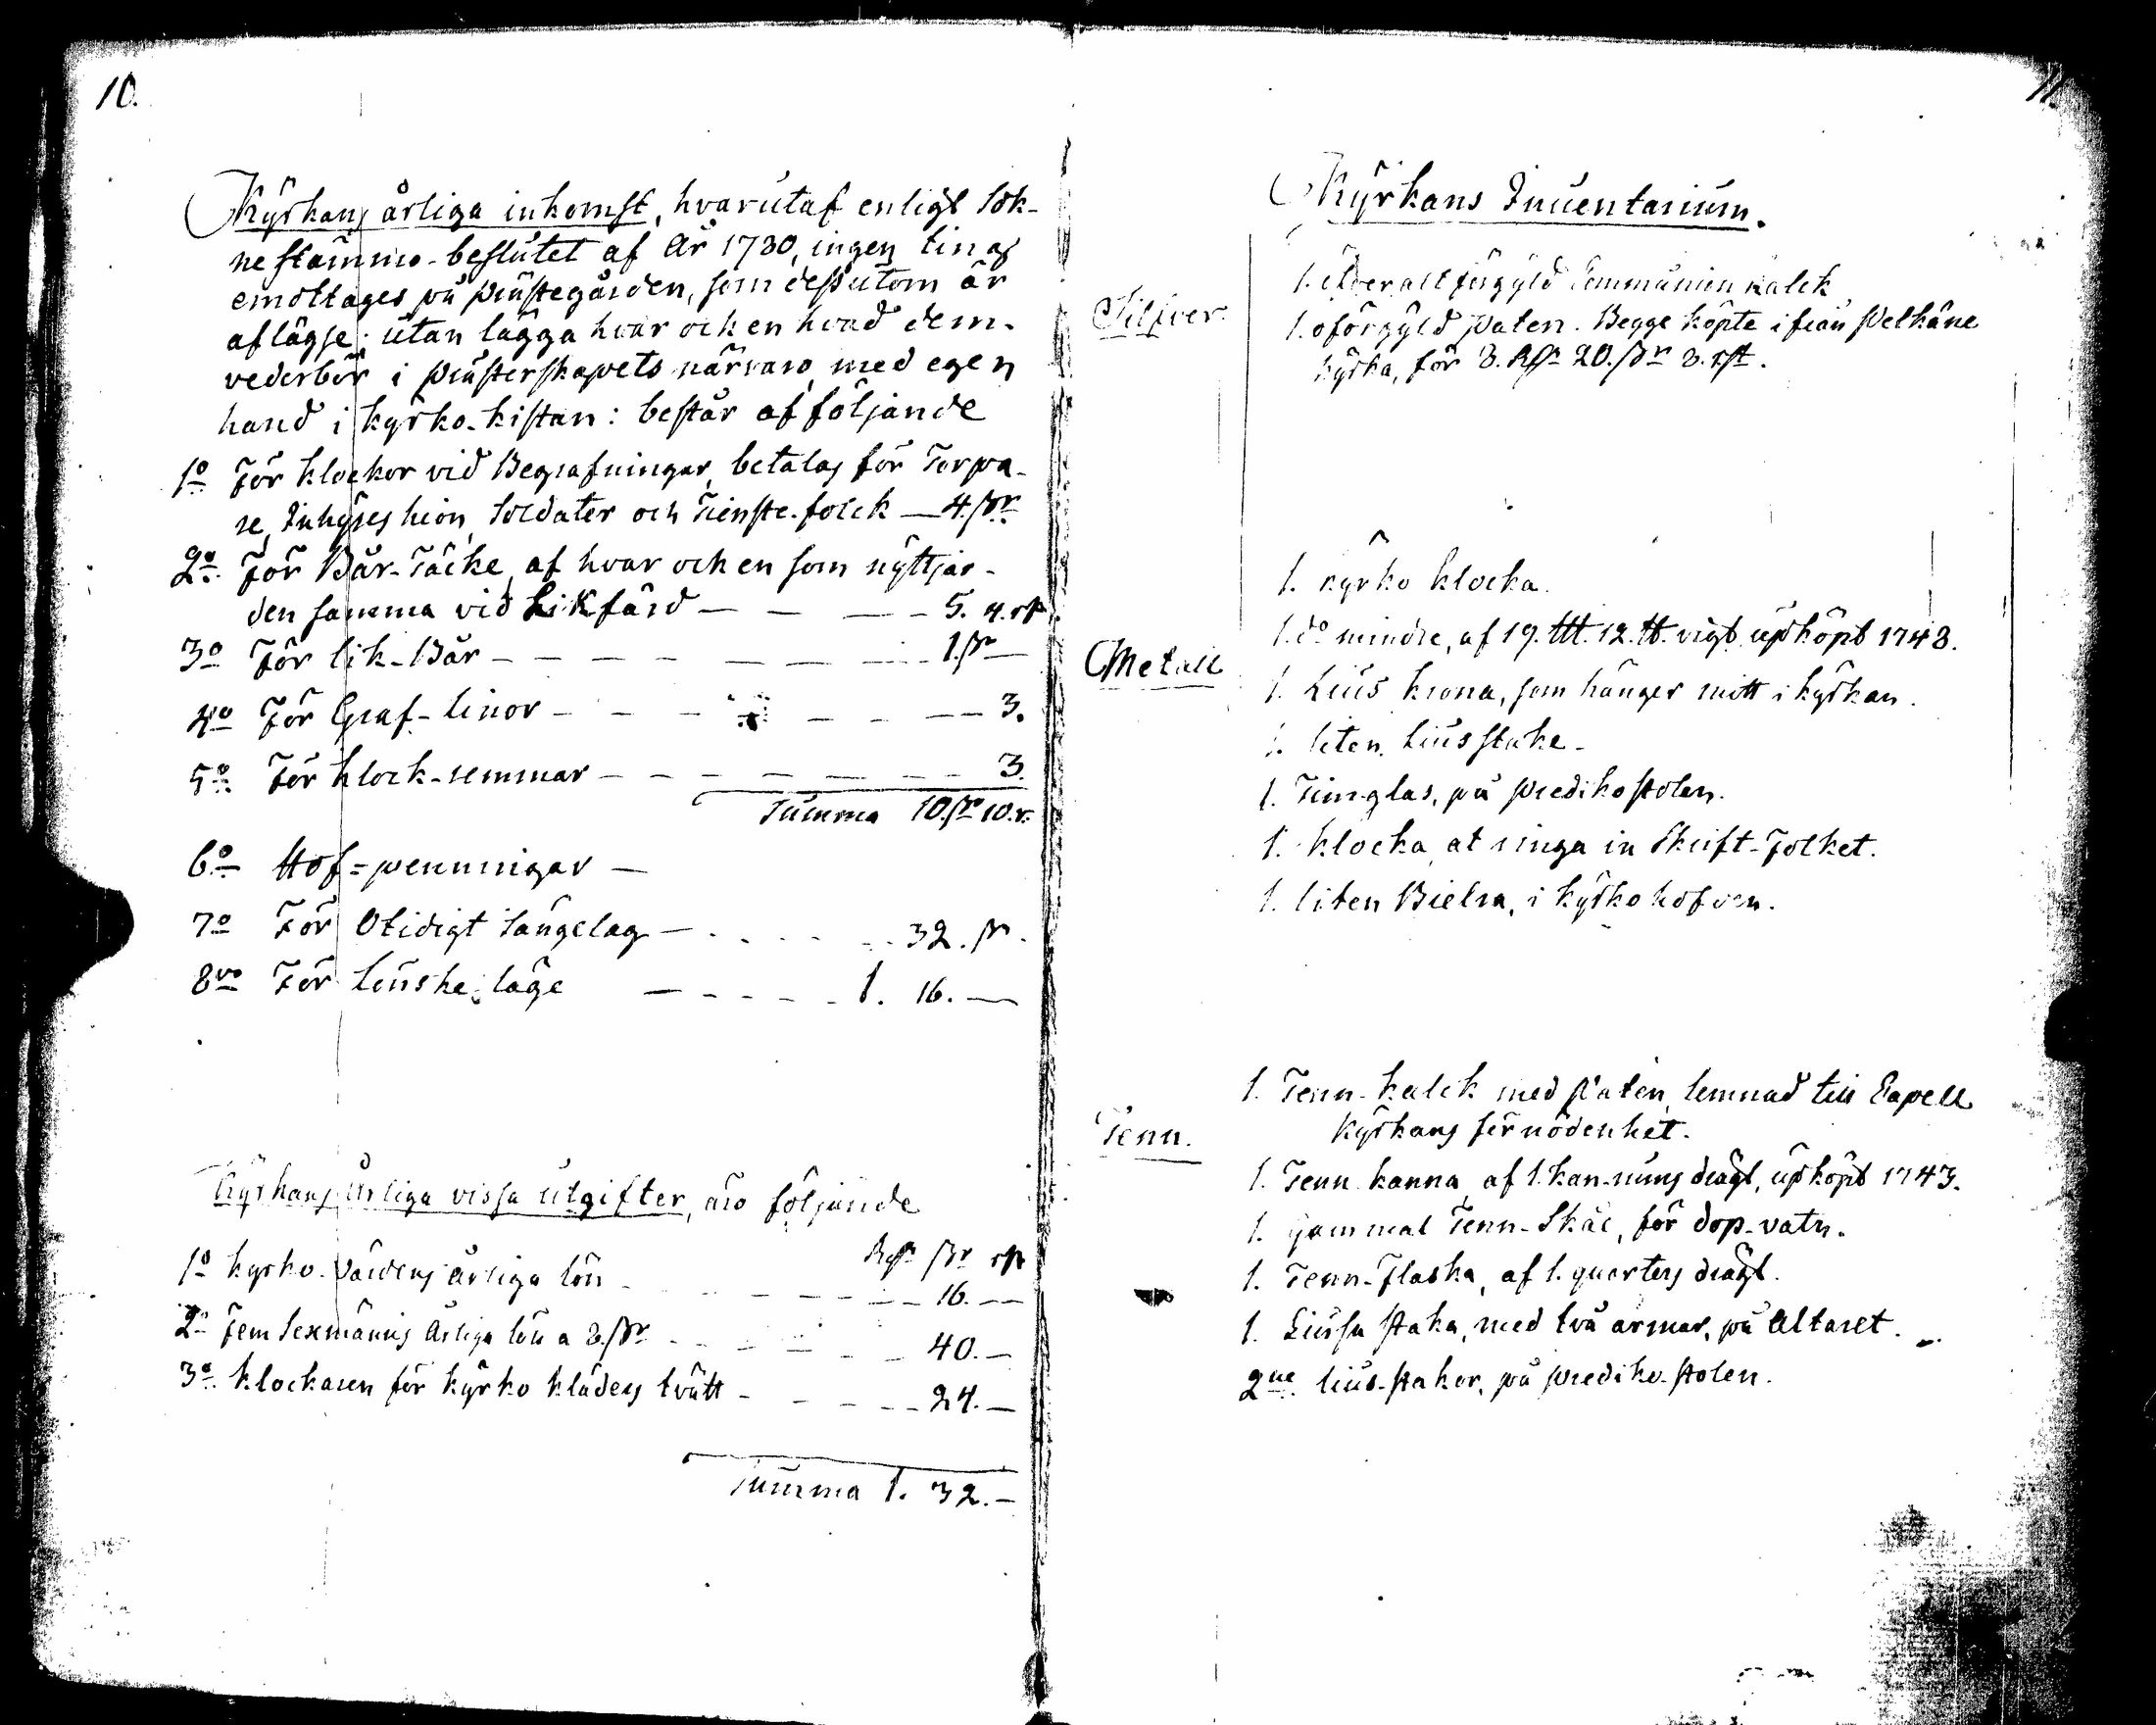 10.
Kyrkans årliga inkomst, hvarutaf enligt Sok-
ne stämmo-beslutet af År 1780, ingen ting
emottages på prästegården, som dessutom är
aflägse; utan lägga hvar och en hvad dem
vederbör i prästerskapets närvaro, med egen
hand i kyrko-kistan: består af följande
1o För klockor vid Begrafningar, betalas för Torpa-
re, Inhyses hion, Soldater och Tienste-folck — 4. ßr
2o För Bår-Täcke, af hvar och en som nyttjar
den samma vid Likfärd — — — 5. 4. rst
3o För lik-Bår — — — — — 1. ßr —
4o För Graf-linor — — — — — 3.
5o För klock-remmar — — — — — 3.
Summa 10. ßr 10. r.
6o Hof=penningar —
7o För Otidigt sängelag — 32. ßr.
8vo För Lönske läge — — — 1. 16. —
Kyrkans Årliga vissa utgifter, äro följande
Rdr ßr rst
1o kyrko-värdens årliga lön — — — 16. —
2o Fem Sexmänns årliga lön a 8. ßr — — — 40. —
3o klockaren för kyrko kläders tvätt — — — 24. —
Summa 1. 32. —
11.
Kyrkans Inventarium.
Silfver.
1. öfver alt förgyld Communion kalck
1. oförgyld Paten. Begge köpte ifrån Pelkäne
kyrka, för 3. Rdr 20. ßr 3. rst.
Metall
1. kyrko klocka.
1. do mindre, af 19. ttt. 12. tt. vigt upköpt 1748.
1. Lius krona, som hänger mitt i kyrkan.
1. liten Lius stake.
1. Timglas, på predikostolen.
1. klocka, at ringa in Skrift-Folket.
1. liten Bielra, i kyrko hofven.
Tenn.
1. Tenn-kalck med Paten, lemnad till Capell
kyrkans förnödenhet.
1. Tenn kanna, af 1. kan-nuns drägt, upköpt 1743.
1. gammal Tenn-Skål, för dop-vatn.
1. Tenn-Flaska, af 1. quarters drägt.
1. Liusa staka, med två armar, på Altaret.
2ne lius-stakor, på prediko-stolen.